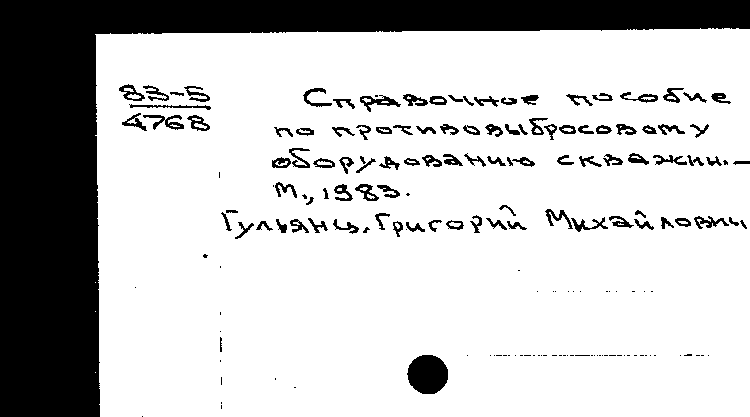 83-5
4768
Справочное пособие
по противовыбросовому
оборудованию скважин. —
М., 1983.
Гульянц, Григорий Михайлович